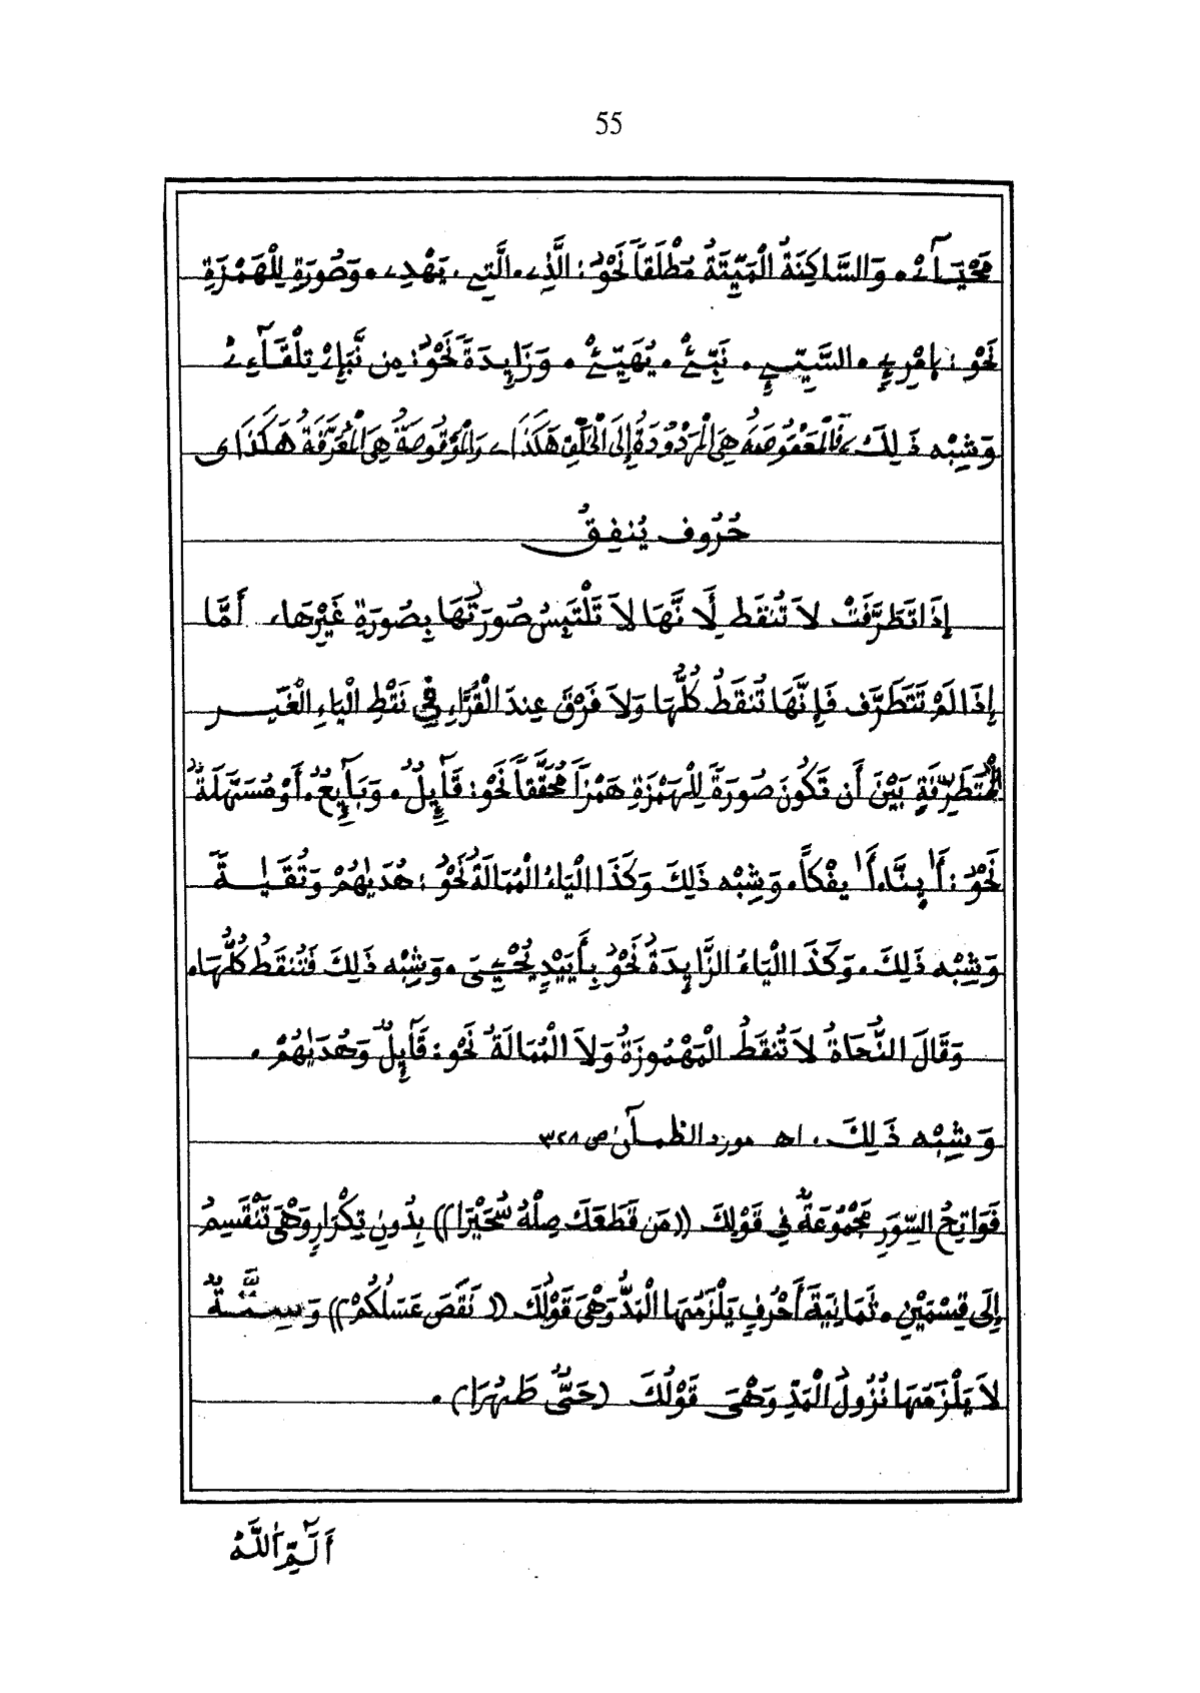 55
مَحْيَآءْ. وَالسَّاكِنَةُ الْمَيِّتَةُ مُطْلَقاً نَحْوُ: الَّذِے. الَّتِے. يَهْدِے. وَصُورَةٍ لِلْهَمْزَةِ
نَحْوُ: اِمْرِےٕ. السَّيِّےٕ. نَبِّۓْ. يُهَيِّۓْ. وَزَايِدَةً نَحْوُ: مِن نَّبَإِےْ تِلْقَآءِےْ
وَشِبْهِ ذَلِكَ، فَالْمَعْقُوصَةُ هِيَ الْمَرْدُودَةُ إِلَى الْخَلْفِ هَكَذَا ے وَالْمَوْقُوصَةُ هِيَ الْمُعَرَّفَةُ هَكَذَا ى
حُرُوف يُنفِقُ
إِذَا تَطَرَّفَتْ لاَ تُنقَط لِأَنَّهَا لاَ تَلْتَبِسُ صُورَتُهَا بِصُورَةِ غَيْرِهَا، أَمَّا
إِذَا لَمْ تَتَطَرَّف فَإِنَّهَا تُنقَطُ كُلُّهَا وَلاَ فَرْقَ عِندَ الْقُرَّاءِ فِي نَقْطِ الْيَاءِ الْغَيْرِ
الْمُتَطَرِّفَةِ بَيْنَ أَن تَكُونَ صُورَةً لِلْهَمْزَةِ هَمْزاً مُحَقَّقاً نَحْوُ: قَآئِلٌ. وَبَآئِعٌ. أَوْ مُسَهَّلَةً
نَحْوُ: أَا۟ ينَّا. أَا۟ يفْكاً. وَشِبْهِ ذَلِكَ وَكَذَا الْيَاءُ الْمُمَالَةُ نَحْوُ: هُدَيٰهُمْ وَتُقَيٰةً
وَشِبْهِ ذَلِكَ. وَكَذَا الْيَاءُ الزَّايِدَةُ نَحْوُ بِأَيَيْدٍ يُحْيِيَ. وَشِبْهِ ذَلِكَ فَتُنقَطُ كُلُّهَا.
وَقَالَ النُّحَاةُ لاَ تُنقَطُ الْمَهْمُوزَةُ وَلاَ الْمُمَالَةُ نَحْوُ: قَآئِلٌ وَهُدَيٰهُمْ.
وَشِبْهِ ذَلِكَ. اهـ مورد الظمآن ص ٣٢٨
فَوَاتِحُ السُّوَرِ مَجْمُوعَةٌ فِي قَوْلِكَ ((مَن قَطَعَكَ صِلْهُ سُحَيْرَا)) بِدُونِ تِكْرَارٍ وَهْيَ تَنْقَسِمُ
إِلَى قِسْمَيْنِ. ثَمَانِيَةُ أَحْرُفٍ يَلْزَمُهَا الْمَدُّ وَهْيَ قَوْلُكَ ((نَقَصَ عَسَلُكُمْ)) وَسِتَّةٌ
لاَ يَلْزَمُهَا نُزُولُ الْمَدِّ وَهْيَ قَوْلُكَ (حَتَّىٰ طَهُرَا).
أَلَمِّ اللَّهُ